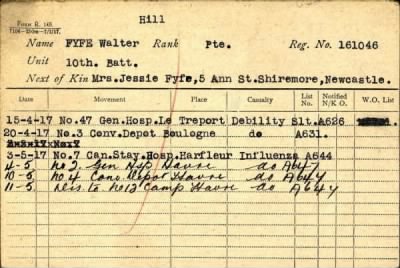 Hill
Form R. 149.
Name FYFE Walter Rank Pte. Reg. No. 161046
Unit 10th. Batt.
Next of Kin Mrs. Jessie Fyfe, 5 Ann St. Shiremore, Newcastle.
Date Movement Place Casualty List No. Notified N/K O. W.O. List
15-4-17 No.47 Gen.Hosp. Le Treport Debility Slt. A626
20-4-17 No.3 Conv.Depot Boulogne do A631.
3-5-17 No.7 Can.Stay.Hosp. Harfleur Influenza A644
4-5 No 2 Gen Hosp Havre do A647
10-5 No 4 Conv Depot Havre do A647
11-5 Dis to No 12 Camp Havre do A647